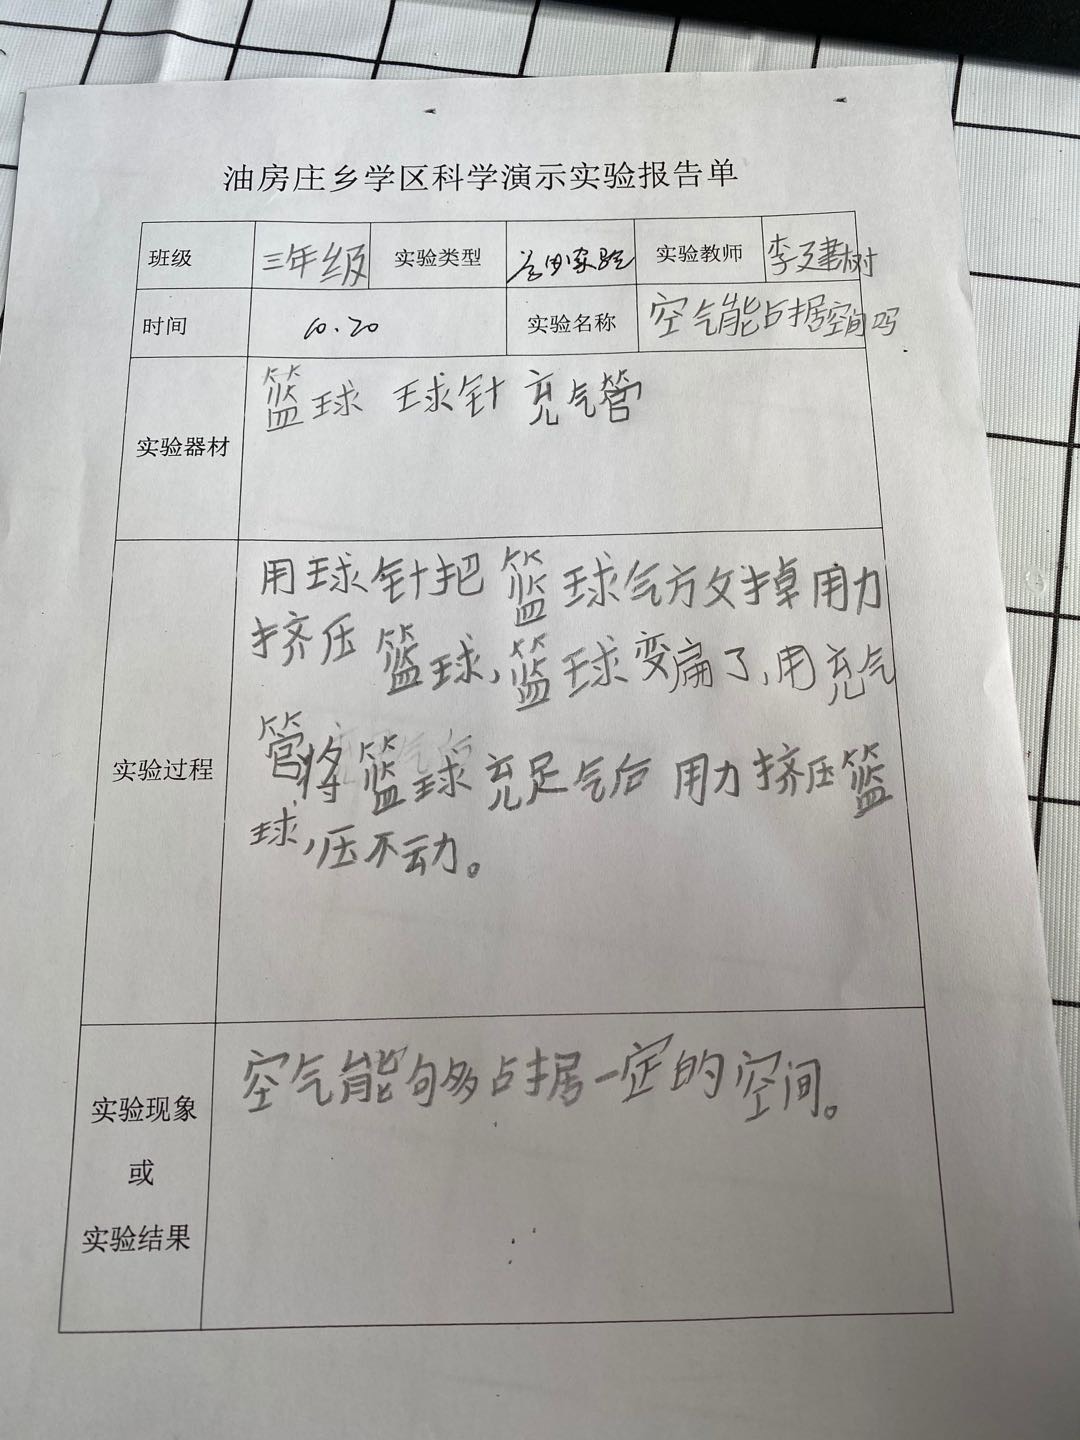 油房庄乡学区科学演示实验报告单
班级 三年级 实验类型 实验 实验教师 李建树
时间 10.20 实验名称 空气能占据空间吗
实验器材 篮球 球针 充气管
用球针把篮球气放掉用力
挤压篮球,篮球变扁了,用充气
实验过程
管将篮球充足气后 用力挤压篮
球,压不动。
空气能够占据一定的空间。
实验现象
或
实验结果